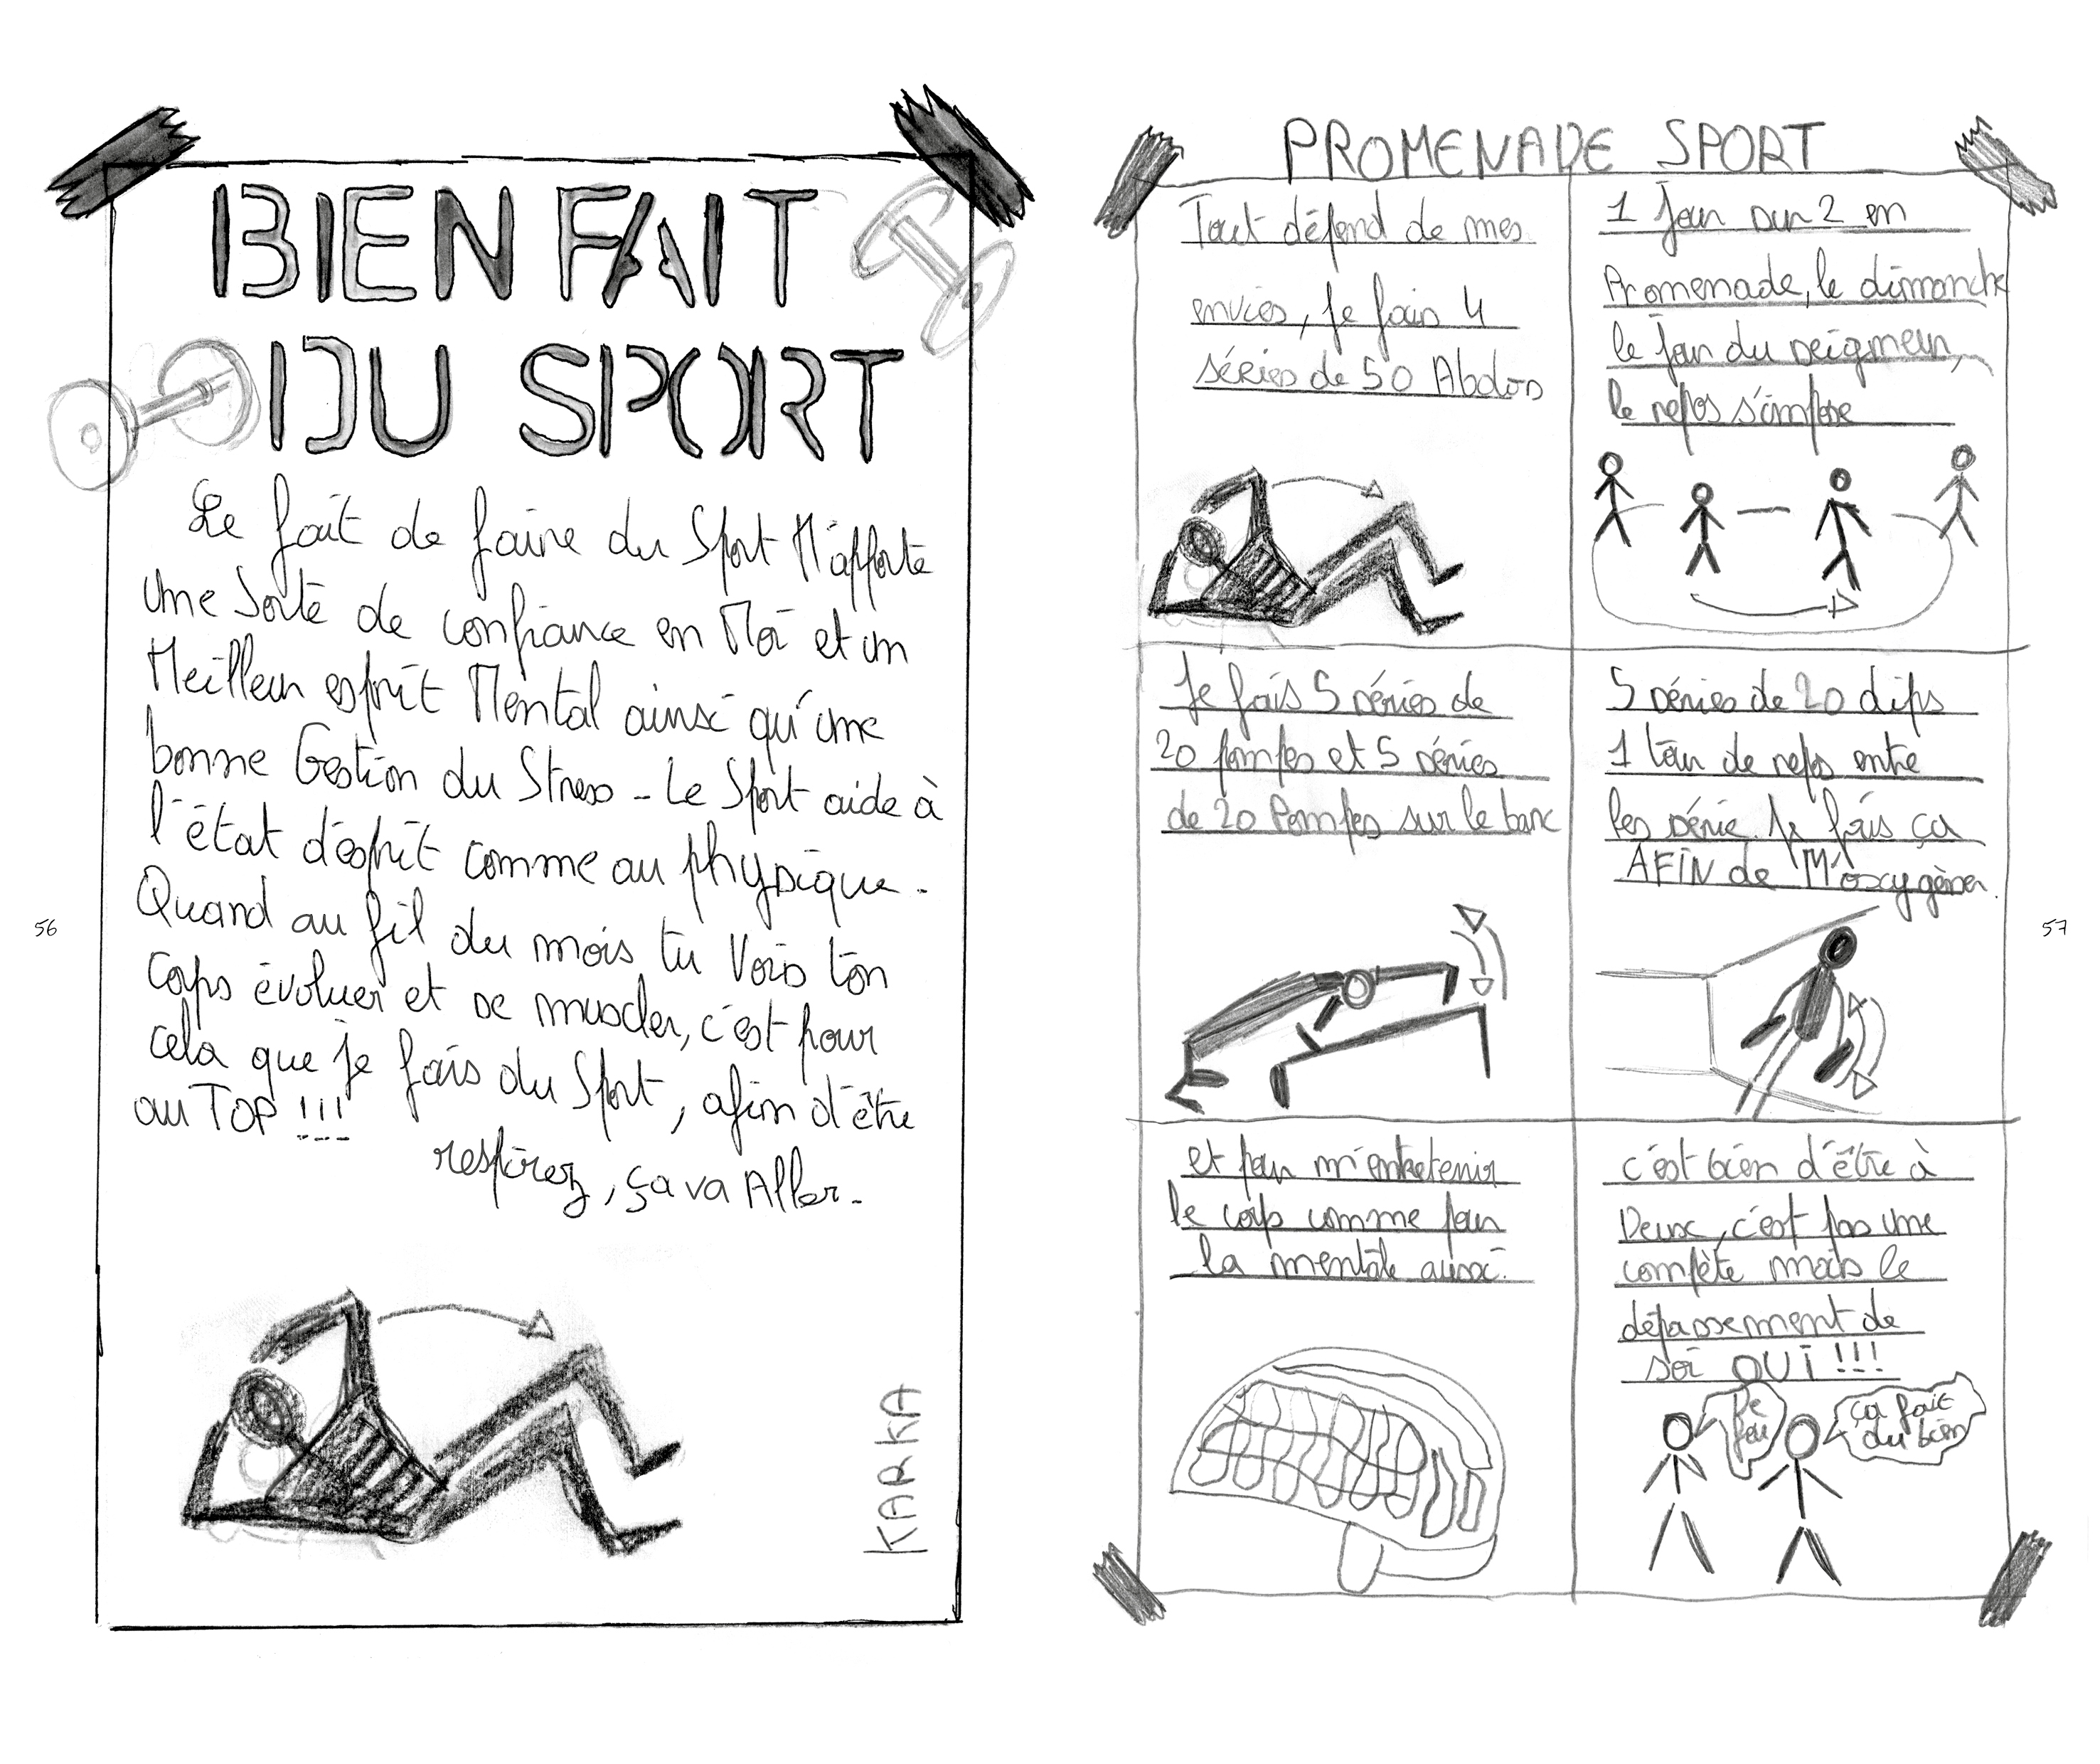 BIEN FAIT
DU SPORT
Le fait de faire du Sport M'apporte
Une Sorte de confiance en Moi et un
Meilleur esprit Mental ainsi qu'une
bonne Gestion du Stress - Le Sport aide à
l'état d'esprit comme au physique.
Quand au fil du mois tu Vois ton
corps évoluer et se muscler, c'est pour
cela que je fais du Sport, afin d'être
au TOP !!!
respirez, ça va Aller.
KARKA
56
PROMENADE SPORT
Tout dépend de mes
envies, je fais 4
séries de 50 Abdos
1 Jour sur 2 en
Promenade, le dimanche
le jour du seigneur,
le repos s'impose
Je fais 5 séries de
20 pompes et 5 séries
de 20 Pompes sur le banc
5 séries de 20 dips
1 tour de repos entre
les série. Je fais ça
AFIN de M'oxygèner.
et pour m'entretenir
le corps comme pour
la mentale aussi.
c'est bien d'être à
Deux, c'est pas une
compète mais le
dépassement de
soi OUI !!!
ça fait
du bien
57